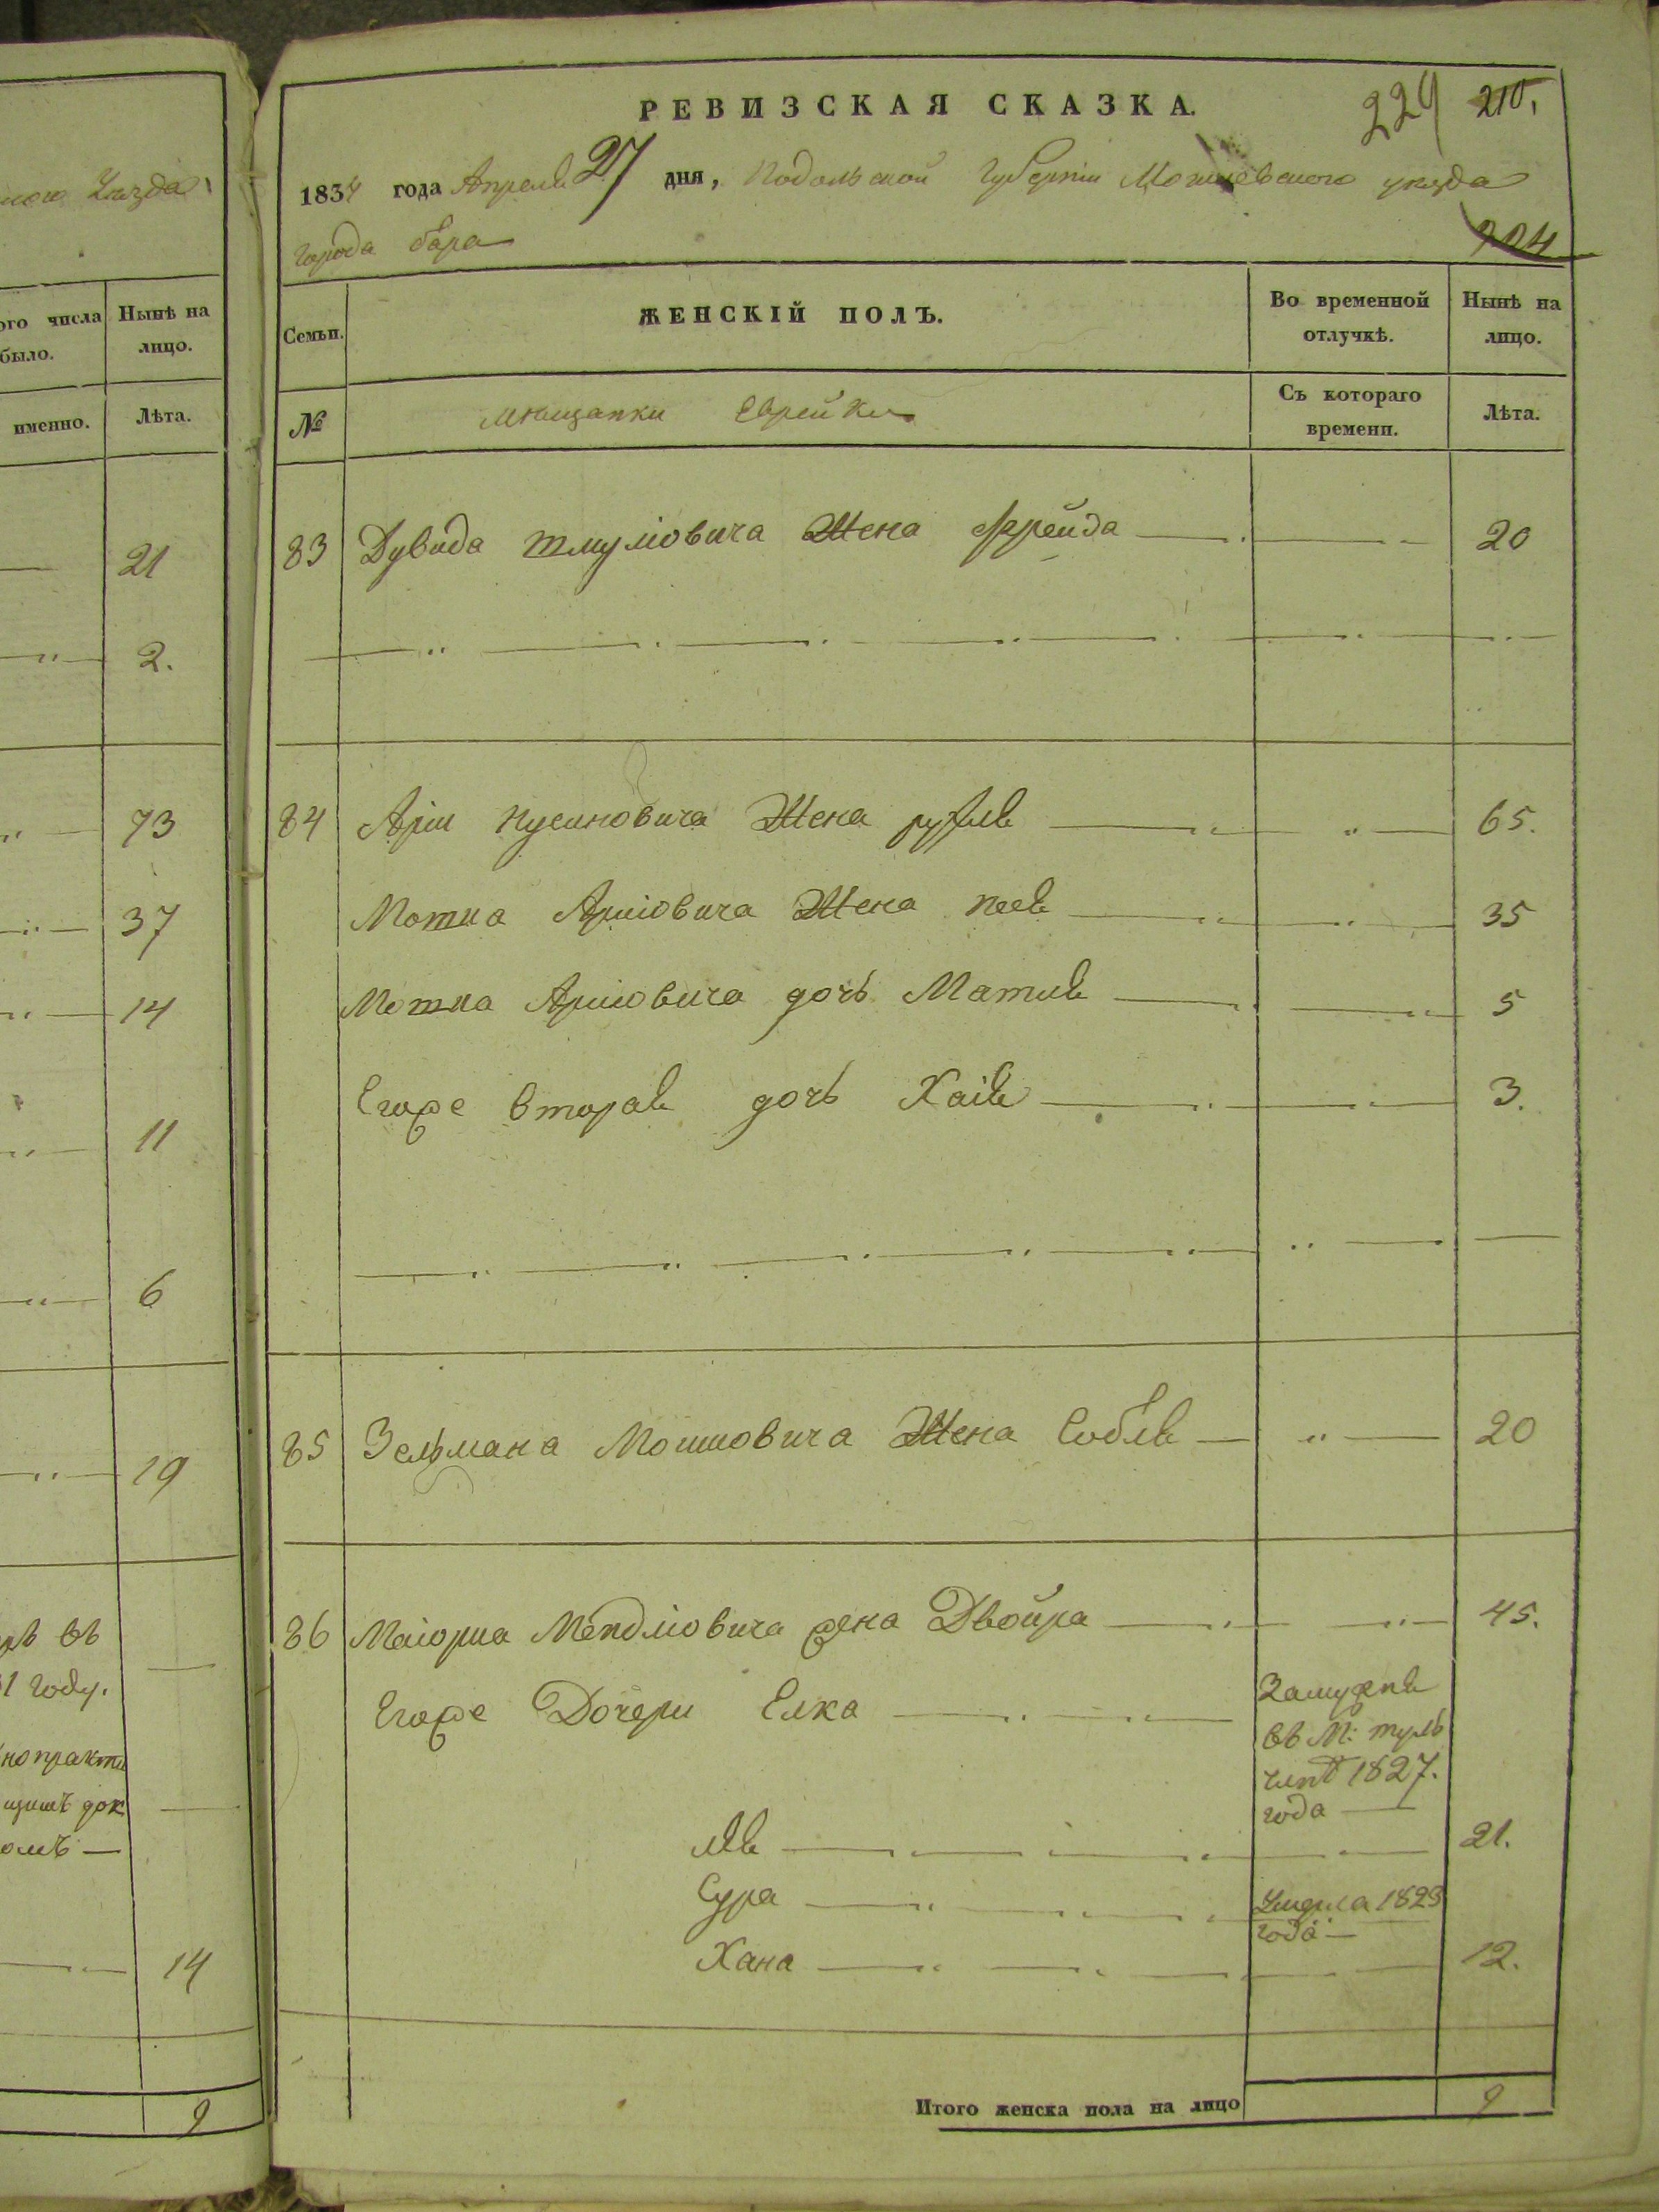 мого Уезда
ого числа
было.
Нынѣ на
лицо.
именно.
Лѣта.
21
2.
73
37
14
11
6
19
въ
1 году.
14
9
РЕВИЗСКАЯ СКАЗКА.
229 210.
1834 года Апреля 27 дня, Подольской Губерніи Могилевского уезда
города бара
204
Семьи.
ЖЕНСКІЙ ПОЛЪ.
Во временной
отлучкѣ.
Нынѣ на
лицо.
№
мещанки Еврейки
Съ котораго
времени.
Лѣта.
83 Дувида Шмуліовича Жена Фрейда 20
84 Аріи Нусиновича Жена рухля 65.
Мотка Аріиовича Жена пея 35
Мотка Аріиовича дочь Матля 5
Егоже вторая дочь Хаія 3.
85 Зельмана Мошковича Жена Собля 20
86 Маіорка Мендліовича жена Двойра 45.
Егоже Дочери Елка
Замужня
въ М:
1827.
года
лѣя 21.
Сура
Умерла 1823
года
Хана 12.
Итого женска пола на лицо 9